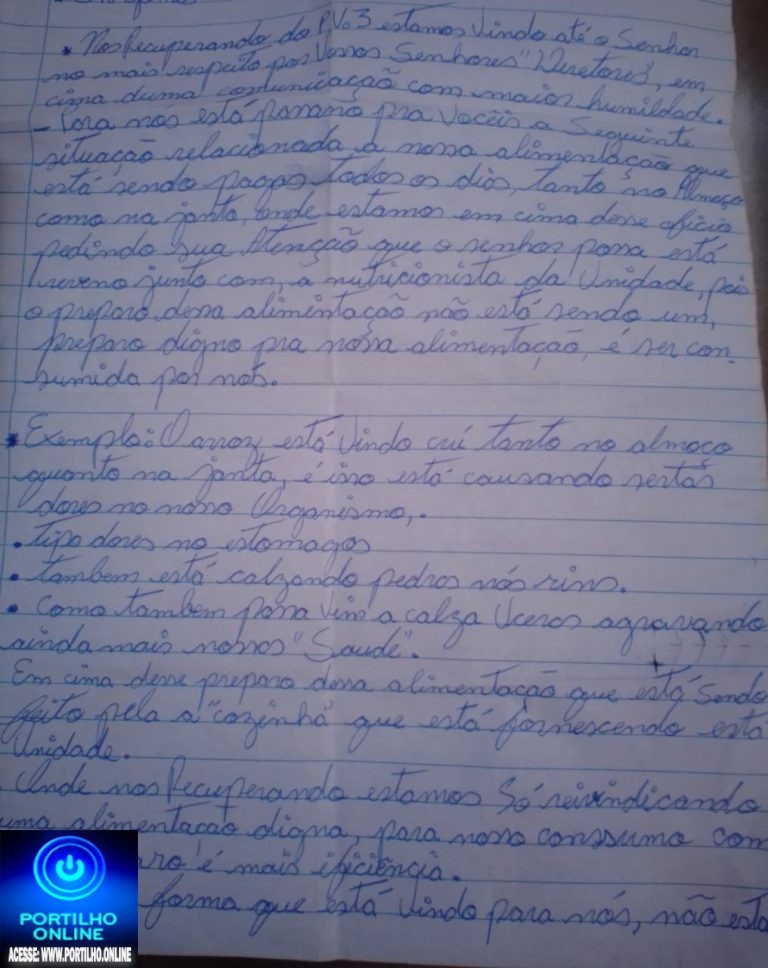 * Nos Recuperando do P.V.3 estamos vindo até o Senhor
no mais respeito por Vossos Senhores "Diretores", em
cima duma comunicação com maior humildade.
- Pora nós está passano pra Vocêis a Seguinte
situação relacionada a nossa alimentação que
está sendo pagas todos os dias, tanto no Almoço
como na janta, onde estamos em cima desse oficio
pedindo sua Atenção que o senhor possa está
reveno junto com, a nutricionista da Unidade, pois
o preparo dessa alimintação não está sendo um,
preparo digno pra nossa alimentação, é ser con-
sumida por nós.
* Exemplo: O arroz está vindo crú tanto no almoço
quanto na janta, é isso está causando sertas
dores no nosso Organismo,.
• tipo dores no estomagos
• tambem está calzando pedras nós rins.
• Como tambem possa vim a calza Uceras agravando
ainda mais nossos "Saude".
Em cima desse preparo dessa alimentação que está Sendo
feito pela a "cozinha" que está fornescendo está
Unidade.
Onde nos Recuperando estamos Só reivindicando
uma alimentação digna, para nosso conssumo com
é mais ificiência.
forma que está vindo para nós, não esta
PORTILHO
ONLINE
ACESSE: WWW.PORTILHO.ONLINE